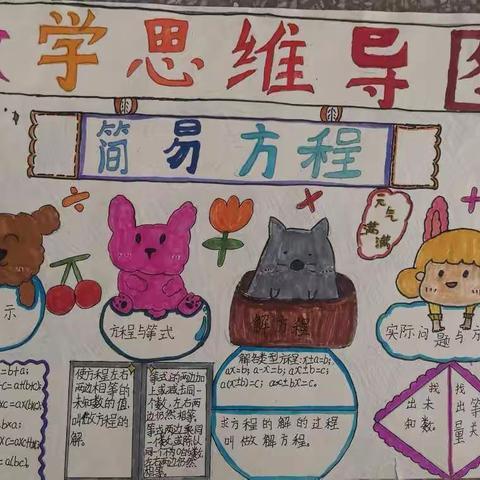 数学思维导图
简易方程
元气
满满
示
方程与等式
解方程
实际问题与方
=b+a;
x=c=a(b×c)
使方程左右
两边相等的
未知数的值,
叫做方程的
解
等式的两边加
上或减去同一
个数,左右两
边仍然相等.
等式两边乘同
一个数,或除以
同一个不为0的数,
左右两边仍然
相等.
解各类型方程:x±a=b;
ax=b; a-x=b; ax±b=c;
a(x±b)=c; ax±bx=c。
求方程的解的过程
叫做解方程。
找
出未
知数。
找
出等
量关